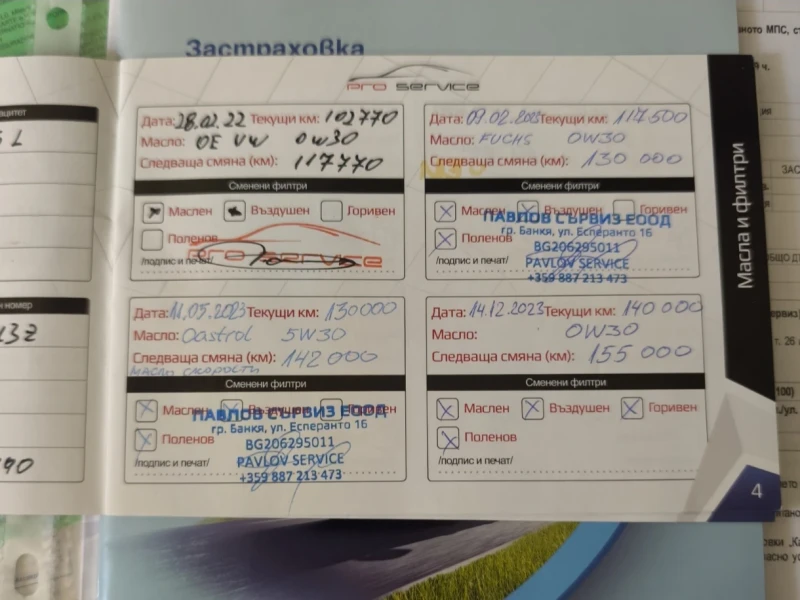 Застраховка
PRO SERVICE
Дата: 28.02.22 Текущи км: 102770
Масло: OE VW 0W30
Следваща смяна (км): 117770
Сменени филтри
Маслен Въздушен Горивен
Поленов
/подпис и печат/
PRO SERVICE
Дата: 09.02.2023 Текущи км: 117500
Масло: FUCHS 0W30
Следваща смяна (км): 130 000
Сменени филтри
Маслен Въздушен Горивен
Поленов
/подпис и печат/
ПАВЛОВ СЪРВИЗ ЕООД
гр. Банкя, ул. Есперанто 16
BG206295011
PAVLOV SERVICE
+359 887 213 473
Дата: 11.05.2023 Текущи км: 130000
Масло: Castrol 5W30
Следваща смяна (км): 142 000
МАСЛО СКОРОСТИ
Сменени филтри
Маслен Въздушен Горивен
Поленов
/подпис и печат/
ПАВЛОВ СЪРВИЗ ЕООД
гр. Банкя, ул. Есперанто 16
BG206295011
PAVLOV SERVICE
+359 887 213 473
Дата: 14.12.2023 Текущи км: 140 000
Масло: 0W30
Следваща смяна (км): 155 000
Сменени филтри
Маслен Въздушен Горивен
Поленов
/подпис и печат/
Масла и филтри
4